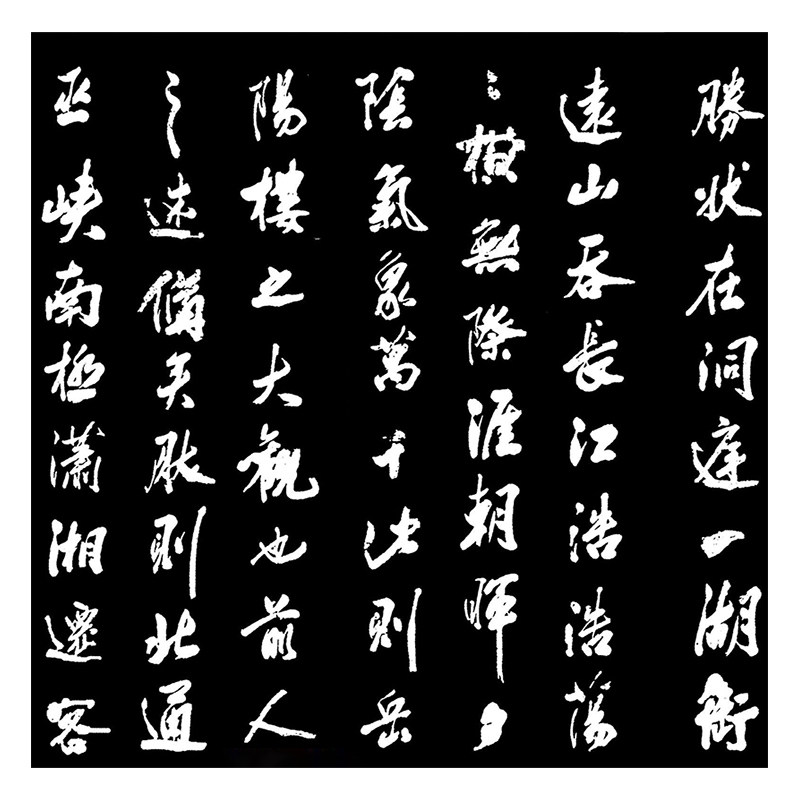 勝狀在洞庭一湖銜
遠山吞長江浩浩蕩
々橫無際涯朝暉夕
陰氣象萬千此則岳
陽樓之大觀也前人
之述備矣然則北通
巫峽南極瀟湘遷客